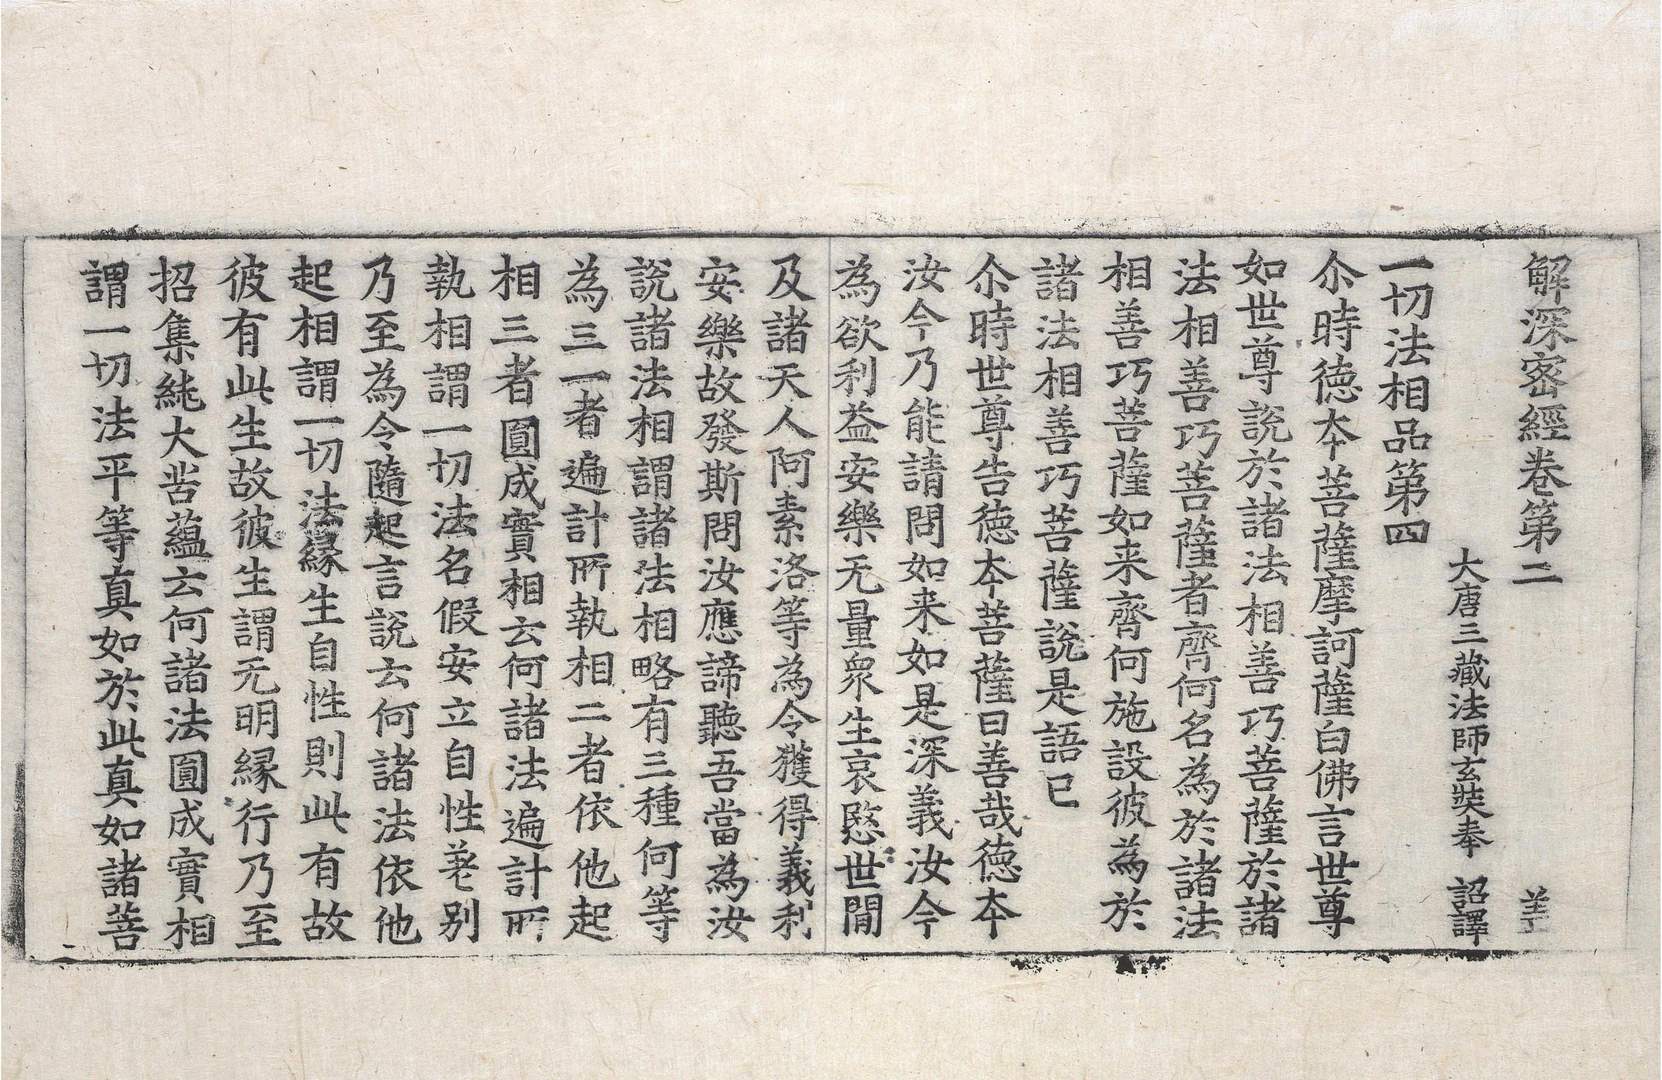 解深密經卷第二 羌
大唐三藏法師玄奘奉 詔譯
一切法相品第四
尒時德夲菩薩摩訶薩白佛言世尊
如世尊說於諸法相善巧菩薩於諸
法相善巧菩薩者齊何名為於諸法
相善巧菩薩如来齊何施設彼為於
諸法相善巧菩薩說是語已
尒時世尊告德夲菩薩曰善哉德夲
汝今乃能請問如来如是深義汝今
為欲利益安樂无量衆生哀愍世間
及諸天人阿素洛等為令獲得義利
安樂故發斯問汝應諦聽吾當為汝
說諸法相謂諸法相略有三種何等
為三一者遍計所執相二者依他起
相三者圓成實相云何諸法遍計所
執相謂一切法名假安立自性差別
乃至為令隨起言說云何諸法依他
起相謂一切法緣生自性則此有故
彼有此生故彼生謂无明緣行乃至
招集純大苦蘊云何諸法圓成實相
謂一切法平等真如於此真如諸菩